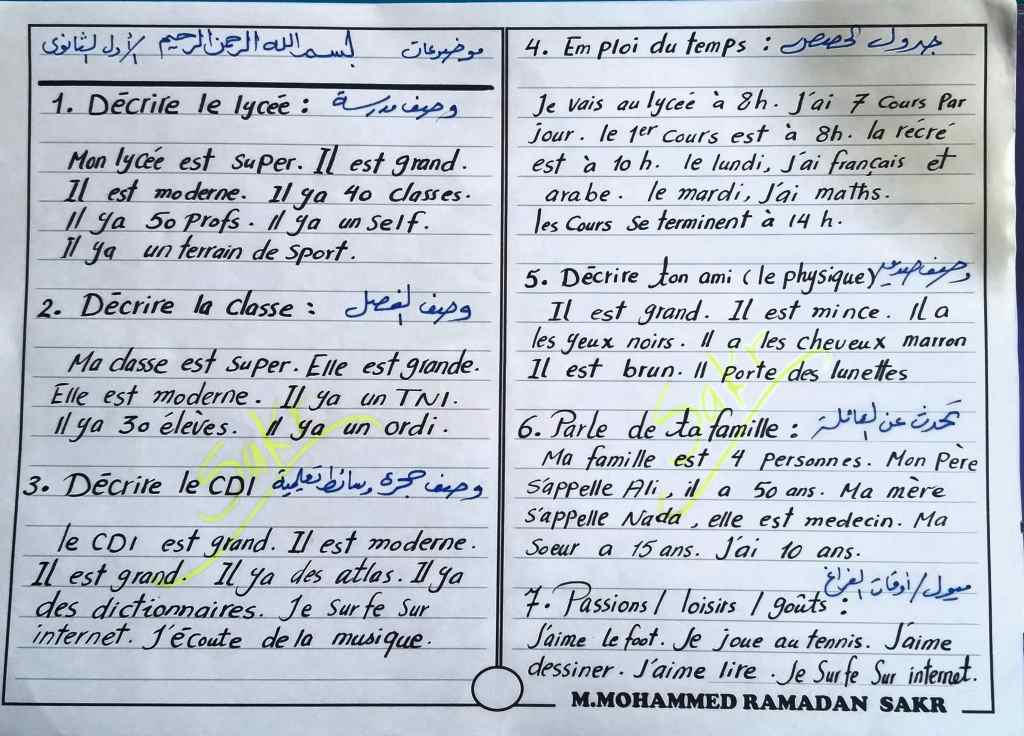 موضوعات بسم الله الرحمن الرحيم الأول الثانوى
1. Décrire le lycée : وصف مدرسة
Mon lycée est super. Il est grand.
Il est moderne. Il ya 40 classes.
Il ya 50 Profs. Il ya un self.
Il ya un terrain de sport.
2. Décrire la classe : وصف الفصل
Ma classe est super. Elle est grande.
Elle est moderne. Il ya un TNI.
Il ya 30 élèves. Il ya un ordi.
3. Décrire le CDI وصف حجرة وسائط تعليمية
le CDI est grand. Il est moderne.
Il est grand. Il ya des atlas. Il ya
des dictionnaires. Je surfe sur
internet. J'écoute de la musique.
4. Emploi du temps : جدول الحصص
Je vais au lycée à 8h. J'ai 7 cours par
jour. le 1er cours est à 8h. la récré
est à 10 h. le lundi, j'ai français et
arabe. le mardi, j'ai maths.
les cours se terminent à 14 h.
5. Décrire ton ami (le physique) وصف صديق
Il est grand. Il est mince. Il a
les yeux noirs. Il a les cheveux marron
Il est brun. Il porte des lunettes
6. Parle de ta famille : تحدث عن العائلة
Ma famille est 4 personnes. Mon père
s'appelle Ali, il a 50 ans. Ma mère
s'appelle Nada, elle est medecin. Ma
soeur a 15 ans. J'ai 10 ans.
ميول / أوقات الفراغ
7. Passions / loisirs / goûts :
J'aime le foot. Je joue au tennis. J'aime
dessiner. J'aime lire. Je surfe sur internet.
M.MOHAMMED RAMADAN SAKR
Sakr
Sakr